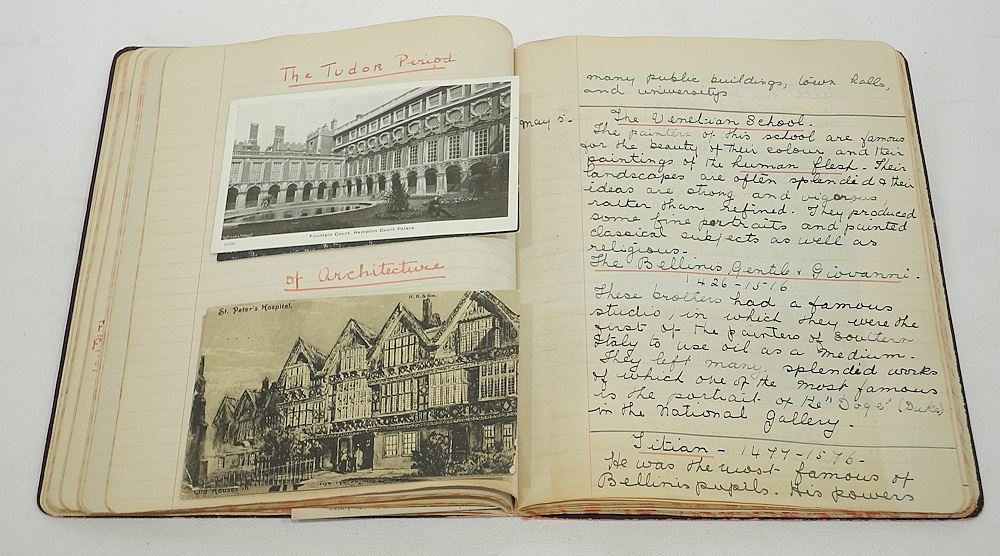 The Tudor Period
Fountain Court, Hampton Court Palace.
of Architecture
St. Peter's Hospital.
H. B. & Son.
Old Houses in
many public buildings, town halls,
and universitys
May 5.
The Venetian School.
The painters of this school are famous
for the beauty of their colour and their
paintings of the human flesh. Their
landscapes are often splendid & their
ideas are strong and vigorous,
rather than refined. They produced
some fine portraits and painted
classical subjects as well as
religious.
The Bellinis, Gentile & Giovanni.
1426-1516
These brothers had a famous
studio, in which they were the
first of the painters of Southern
Italy to use oil as a medium.
They left many splendid works
of which one of the most famous
is the portrait of the "Doge" (Duke)
in the National Gallery.
Titian - 1477-1576-
He was the most famous of
Bellinis pupils. His powers